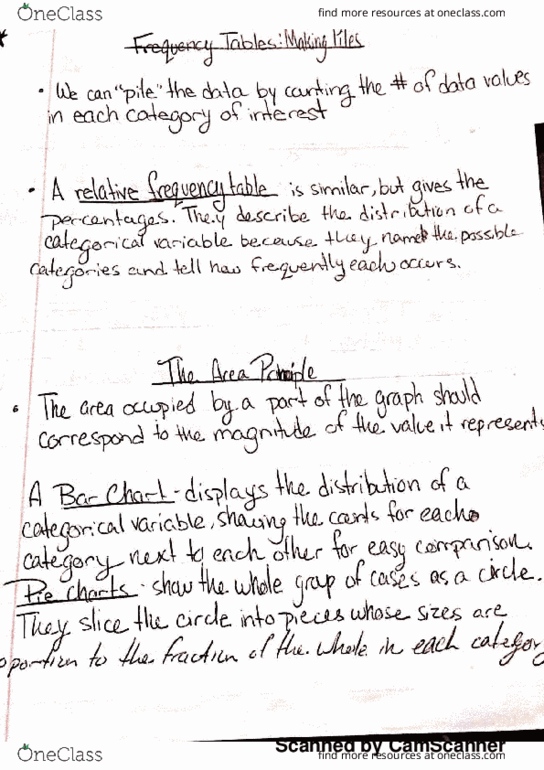 OneClass
find more resources at oneclass.com
Frequency Tables: Making Piles
• We can "pile" the data by counting the # of data values
in each category of interest
• A relative frequency table is similar, but gives the
percentages. They describe the distribution of a
categorical variable because they name the possible
categories and tell how frequently each occurs.
The Area Principle
• The area occupied by a part of the graph should
correspond to the magnitude of the value it represents
A Bar Chart - displays the distribution of a
categorical variable, showing the counts for each
category next to each other for easy comparison.
Pie Charts - show the whole group of cases as a circle.
They slice the circle into pieces whose sizes are
oportion to the fraction of the whole in each category
Scanned by CamScanner
OneClass
find more resources at oneclass.com